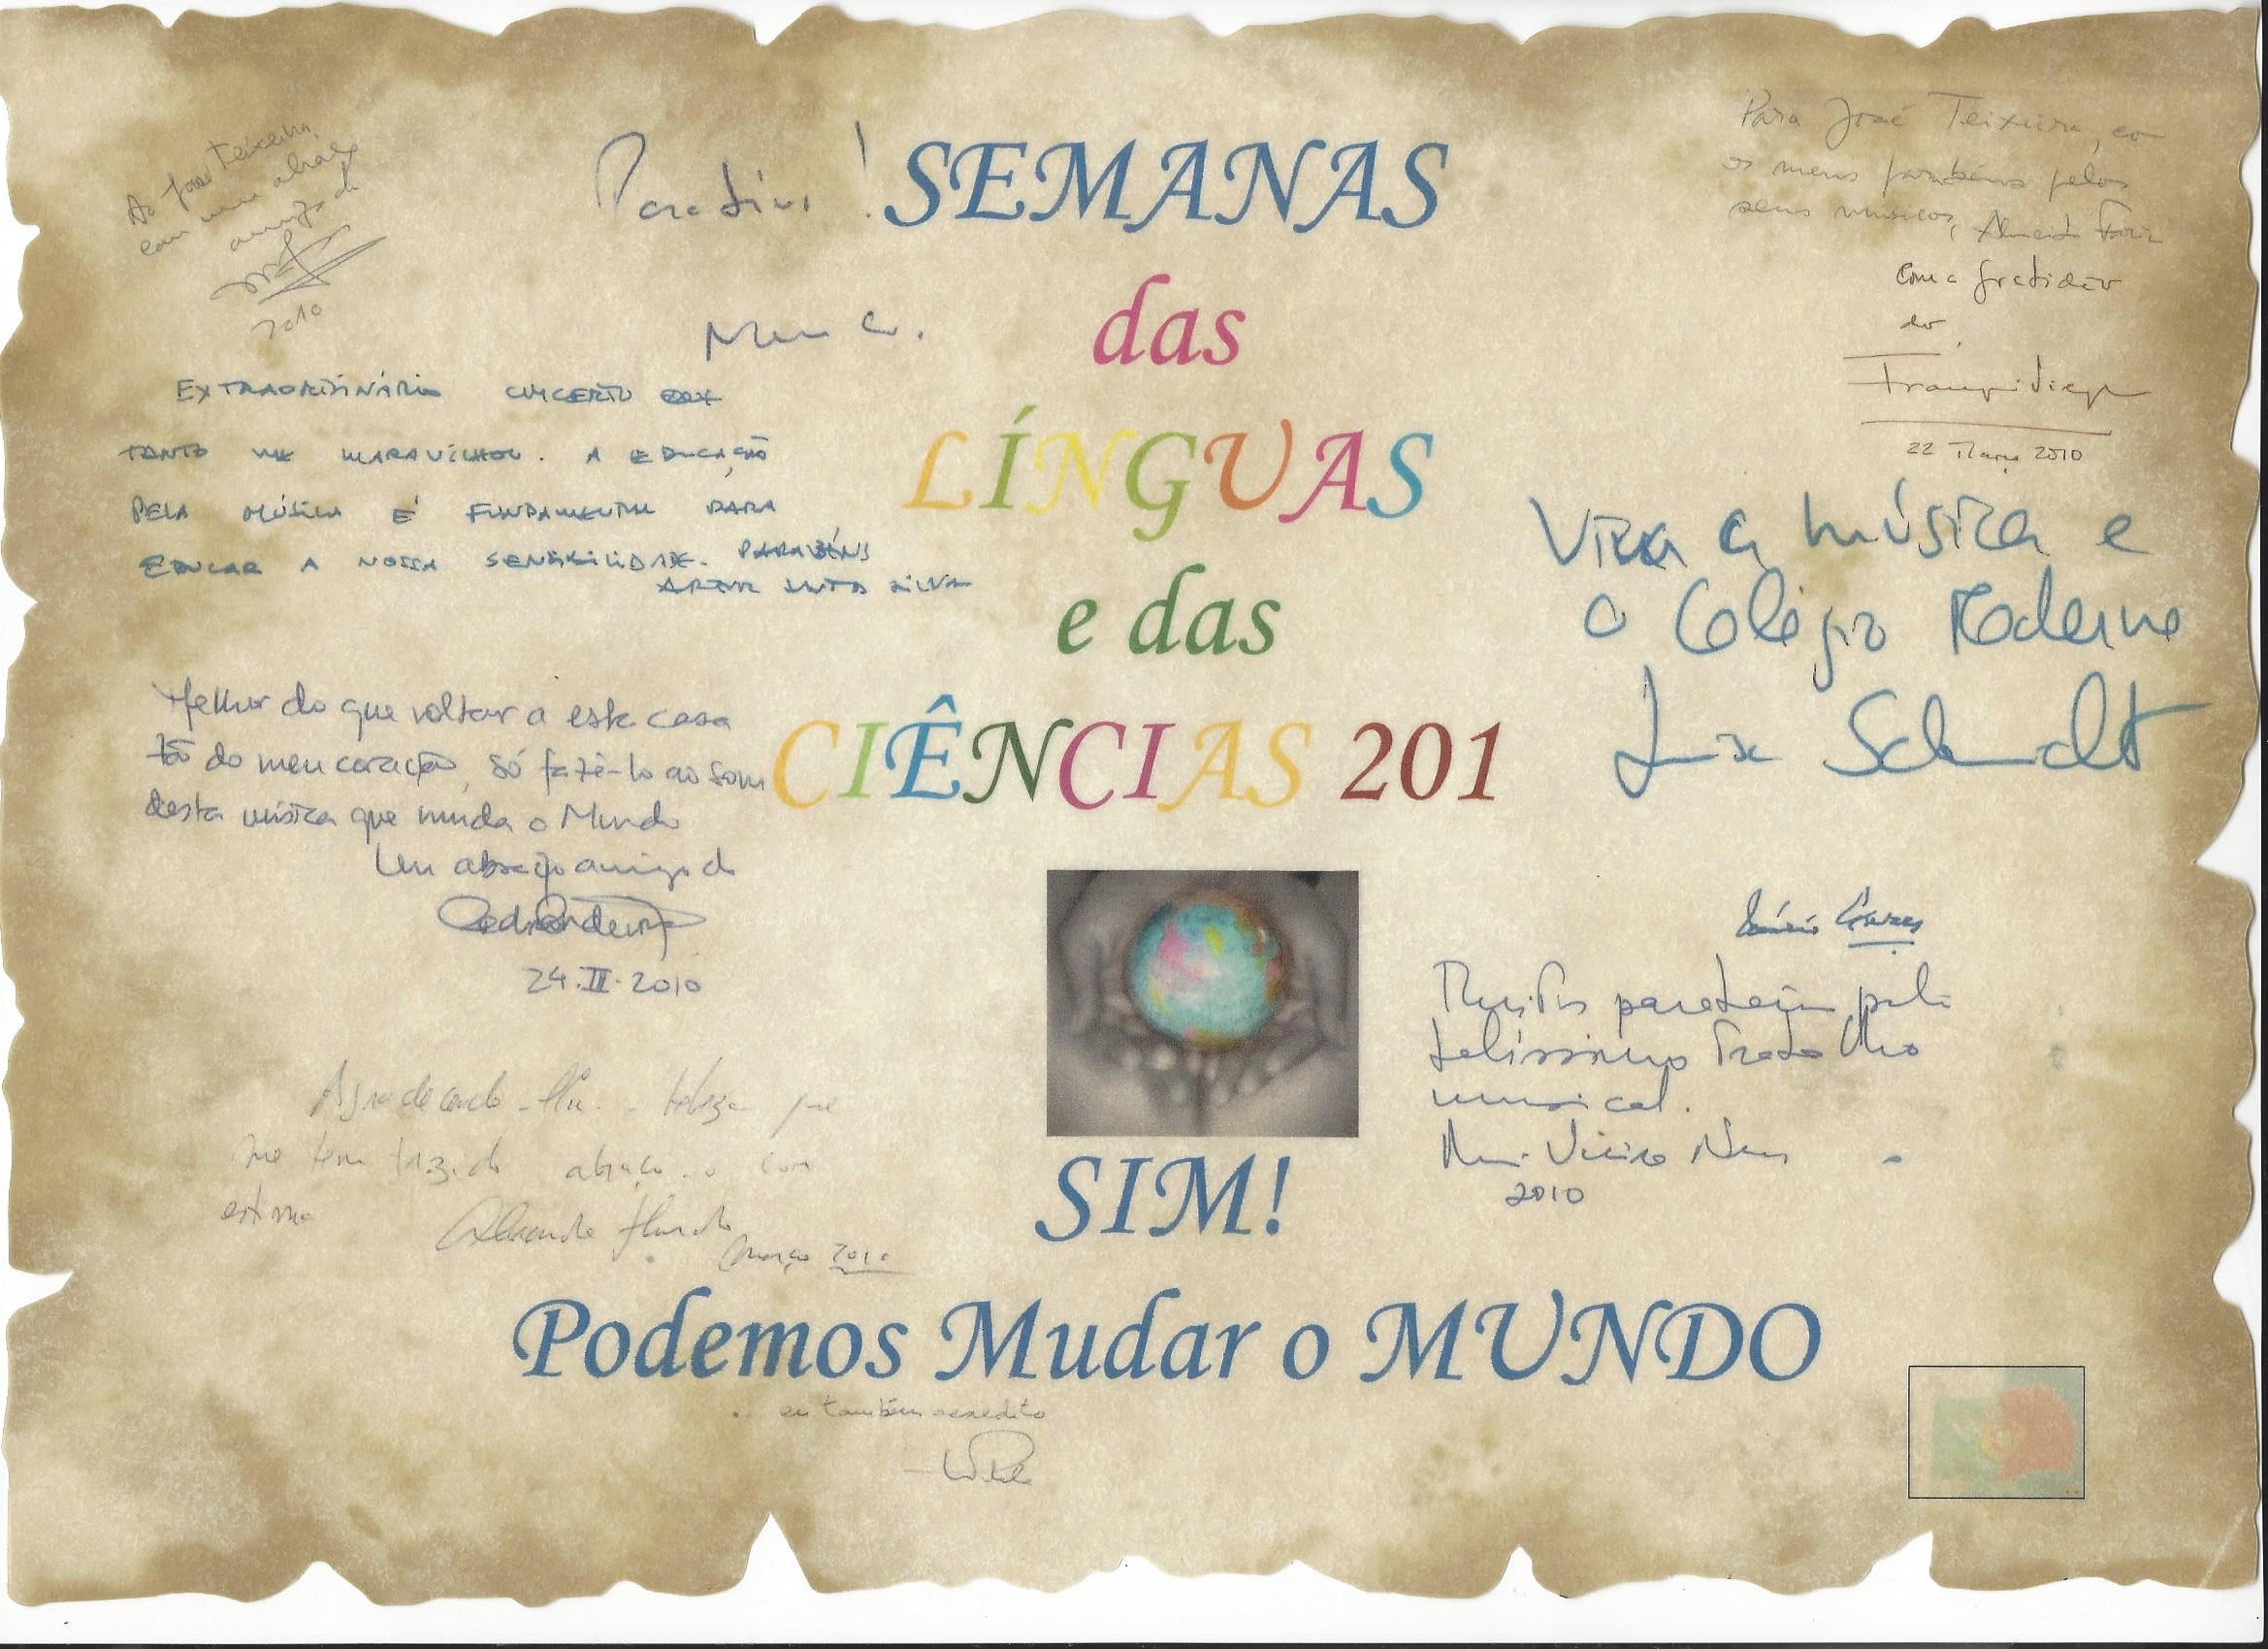 Ao José Teixeira,
com um abraço
amigo do
2010
Parabéns!
SEMANAS
das
LÍNGUAS
e das
CIÊNCIAS 201
Para José Teixeira, co
os meus parabéns pelos
seus músicos, Almeida Faria
Com a gratidão
do
22 Março 2010
EXTRAORDINÁRIO CONCERTO
TANTO ME MARAVILHOU. A EDUCAÇÃO
PELA MÚSICA É FUNDAMENTAL PARA
EDUCAR A NOSSA SENSIBILIDADE. PARABÉNS
ARTUR SANTOS SILVA
Viva a música e
o Colégio Moderno
Luísa Schmidt
Melhor do que voltar a esta casa
tão do meu coração, só fazê-lo ao som
desta música que muda o Mundo
Um abraço amigo do
24.III.2010
Mário Soares
Muitos parabéns pelo
belíssimo trabalho
musical.
Vieira Nery
2010
Agradecendo-lhe a beleza que
me tem trazido abraço-o com
estima
Março 2010
SIM!
Podemos Mudar o MUNDO
.. eu também acredito